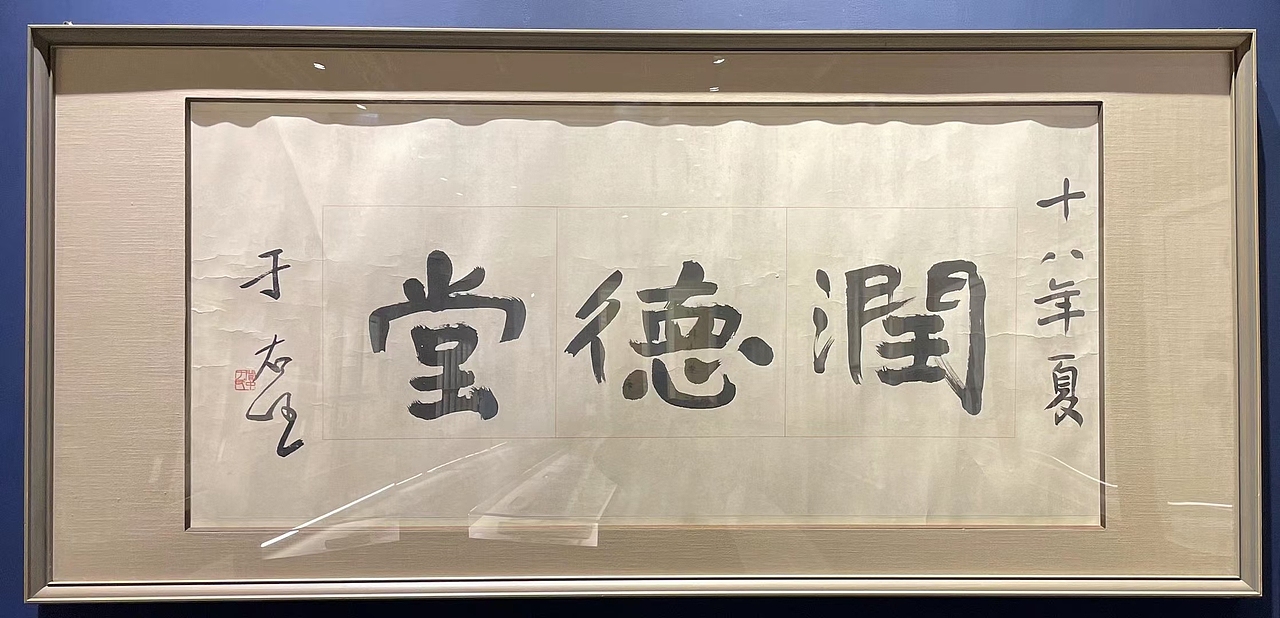 十八年夏
潤德堂
于右任